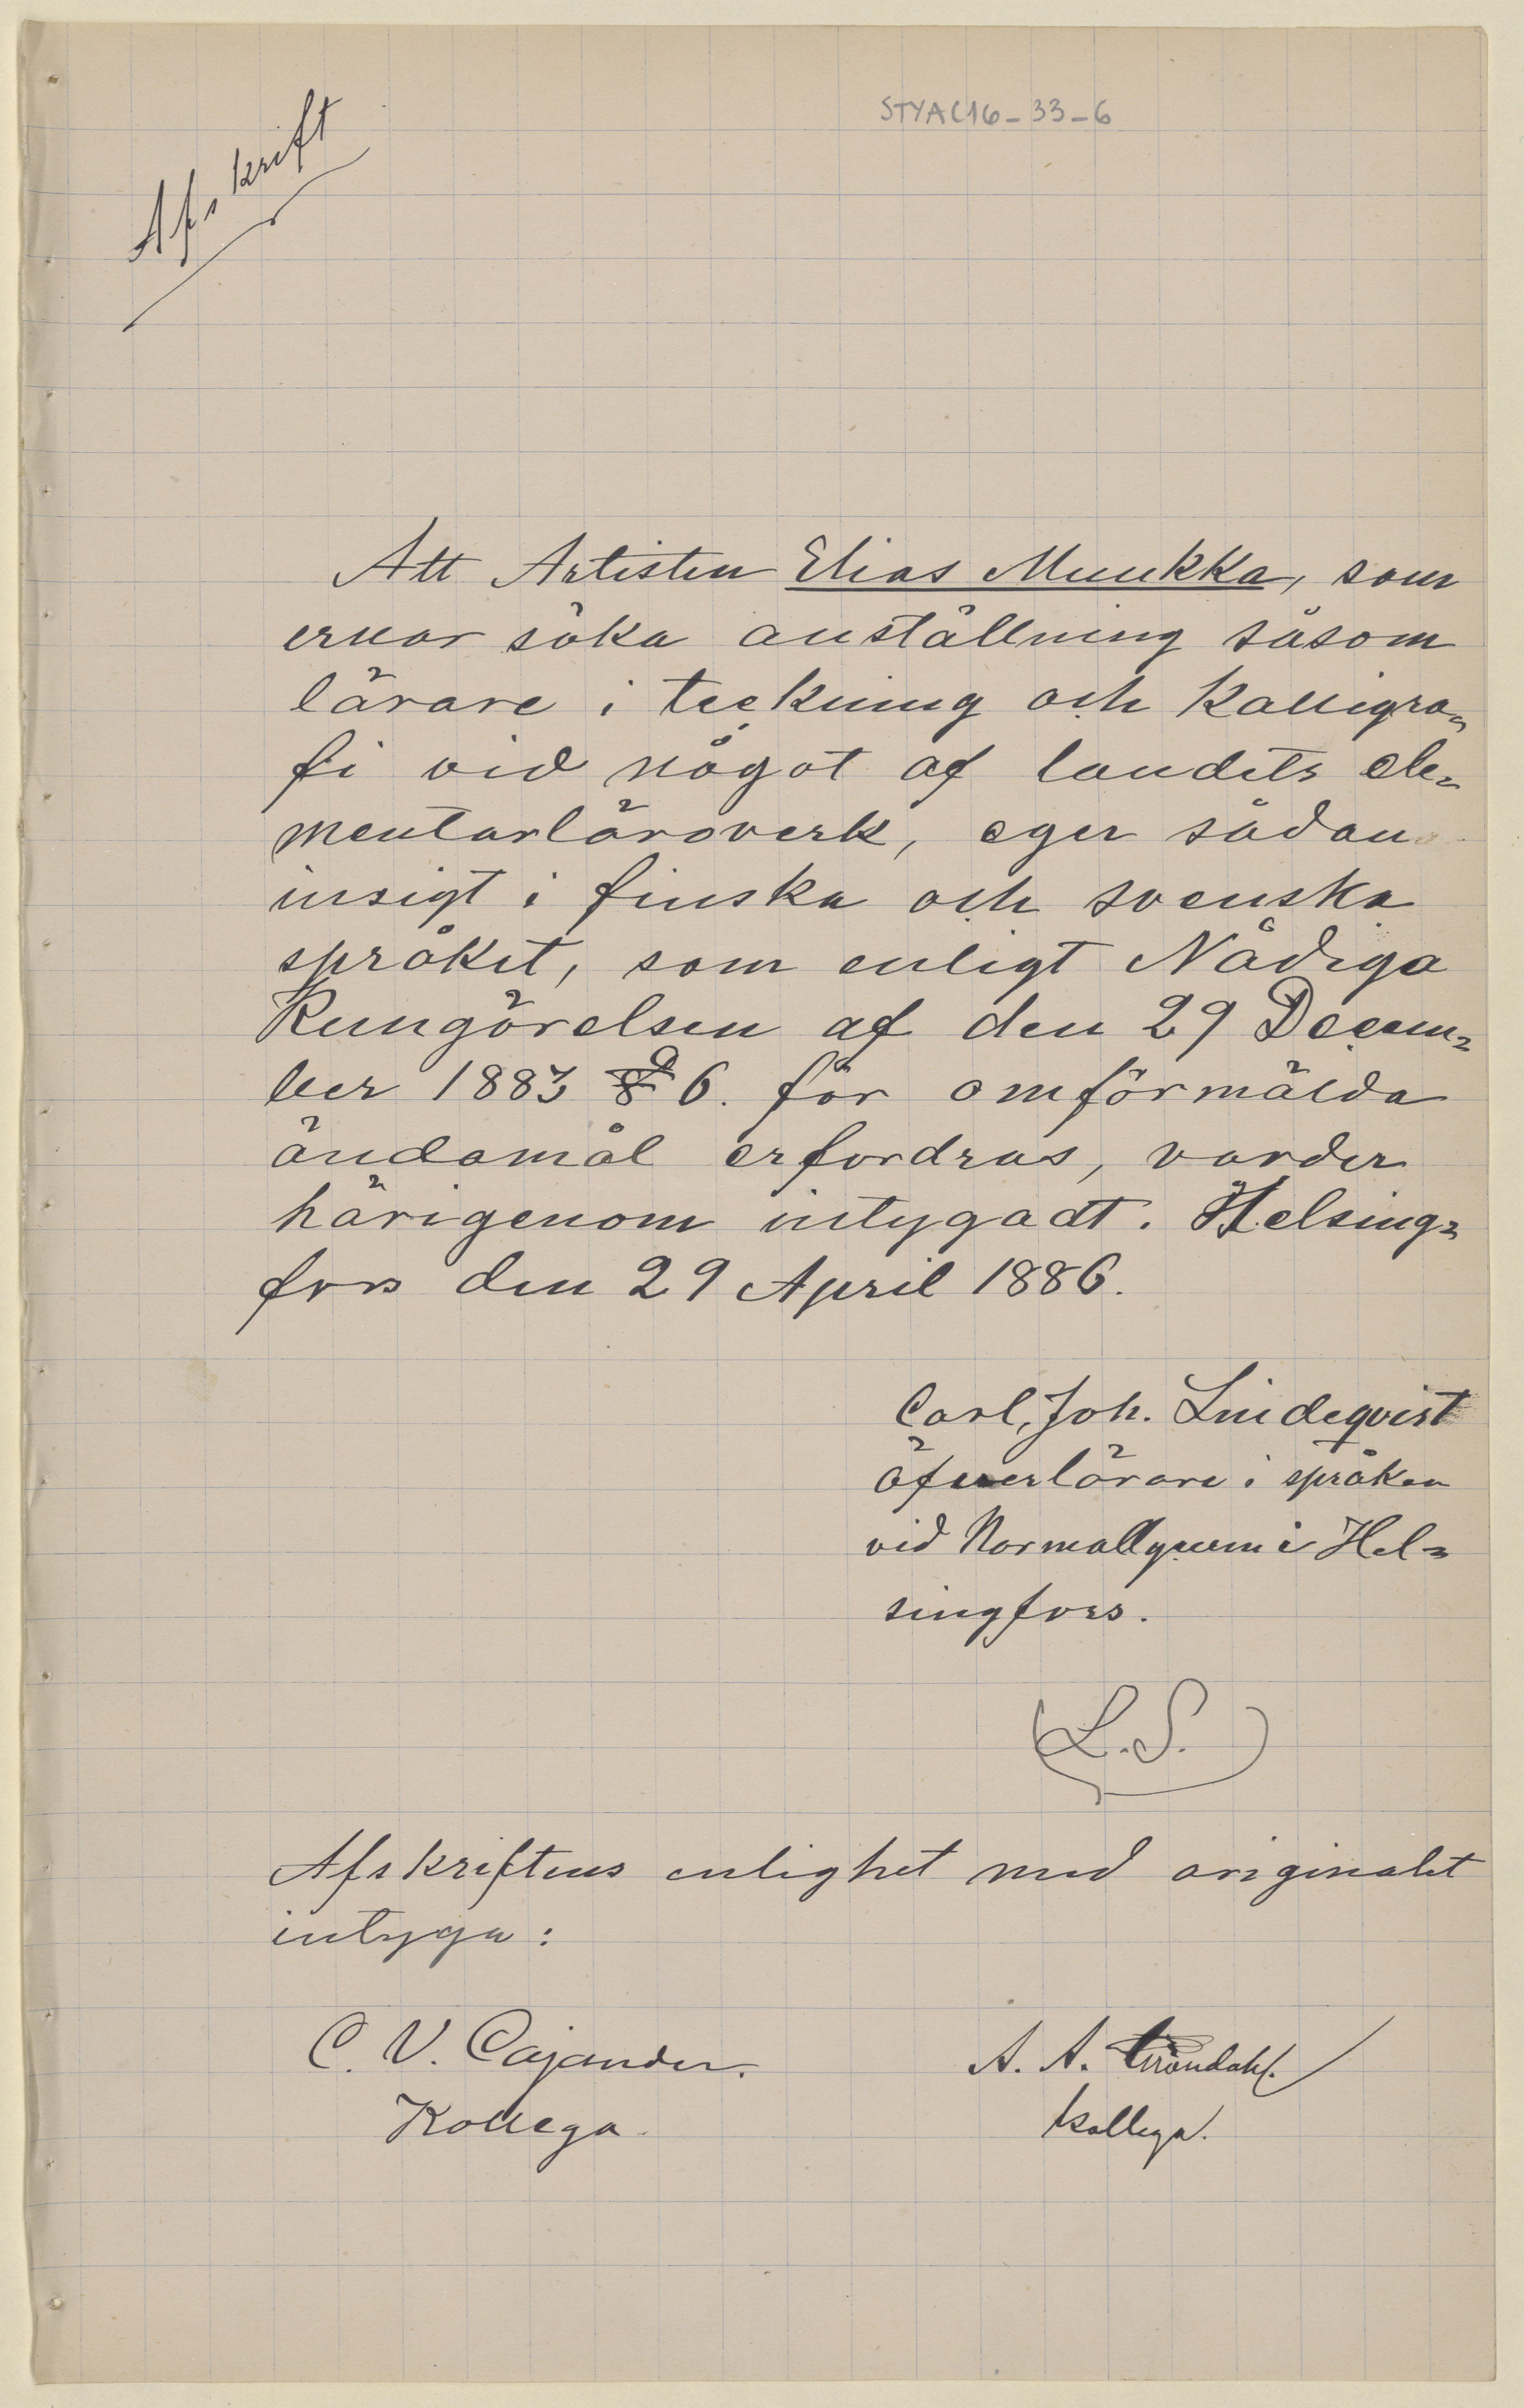 STYA C16-33-6
Afskrift
Att Artisten Elias Muukka, som
ernar söka anställning såsom
lärare i teckning och kalligra-
fi vid något af landets ele-
mentarläroverk, eger sådan
insigt i finska och svenska
språket, som enligt Nådiga
Kungörelsen af den 29 Decem-
ber 1883 § 6. för omförmälda
ändamål erfordras, varder
härigenom intygadt. Helsing-
fors den 29 April 1886.
Carl Joh. Lindeqvist
öfverlärare i språken
vid Normallyceum i Hel-
singfors.
(L.S.)
Afskriftens enlighet med originalet
intyga:
C. V. Cajander.
Kollega.
A. A. Gröndahl.
kollega.